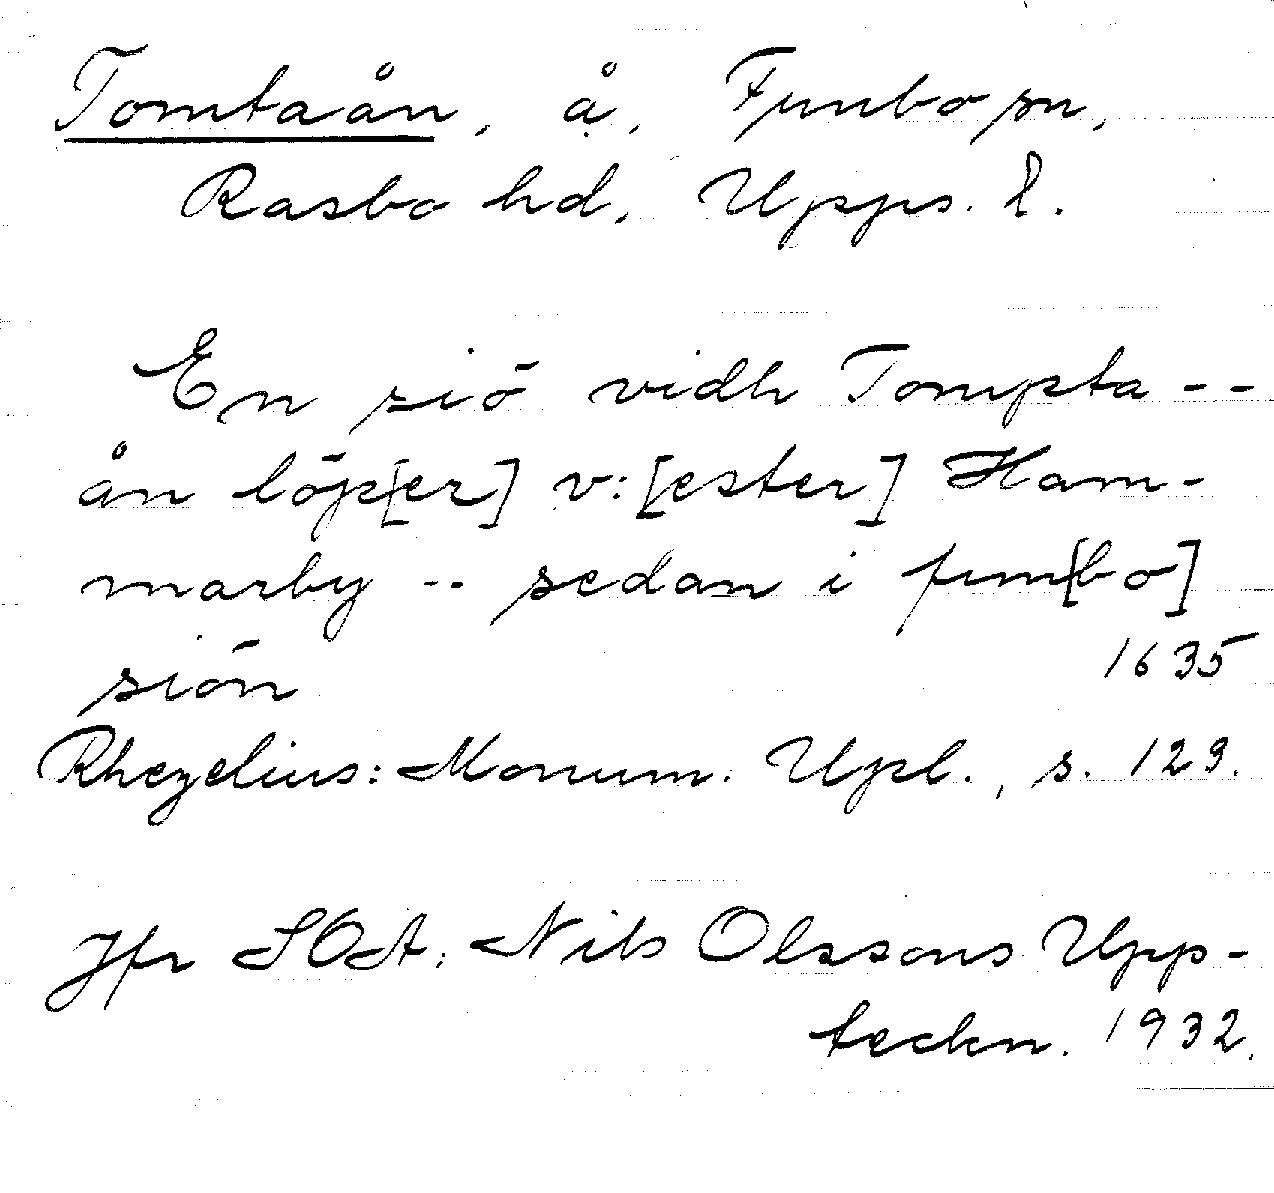 Tomtaån, å, Funbo sn,
Rasbo hd, Upps. l.
En siö vidh Tompta --
ån löp[er] v:[ester] Ham-
marby -- sedan i fun[bo]
siön 1635
Rhezelius: Monum. Upl., s. 129.
Jfr SOA: Nils Olssons Upp-
teckn. 1932.